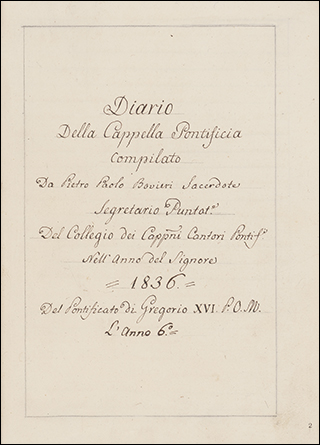 Diario
Della Cappella Pontificia
Compilato
Da Pietro Paolo Bovieri Sacerdote
Segretario Puntat.e
Del Collegio dei Capp͞ni Cantori Pontif.j
Nell' Anno del Signore
= 1836 =
Del Pontificato di Gregorio XVI. P. O. M.
L' Anno 6.o =
2